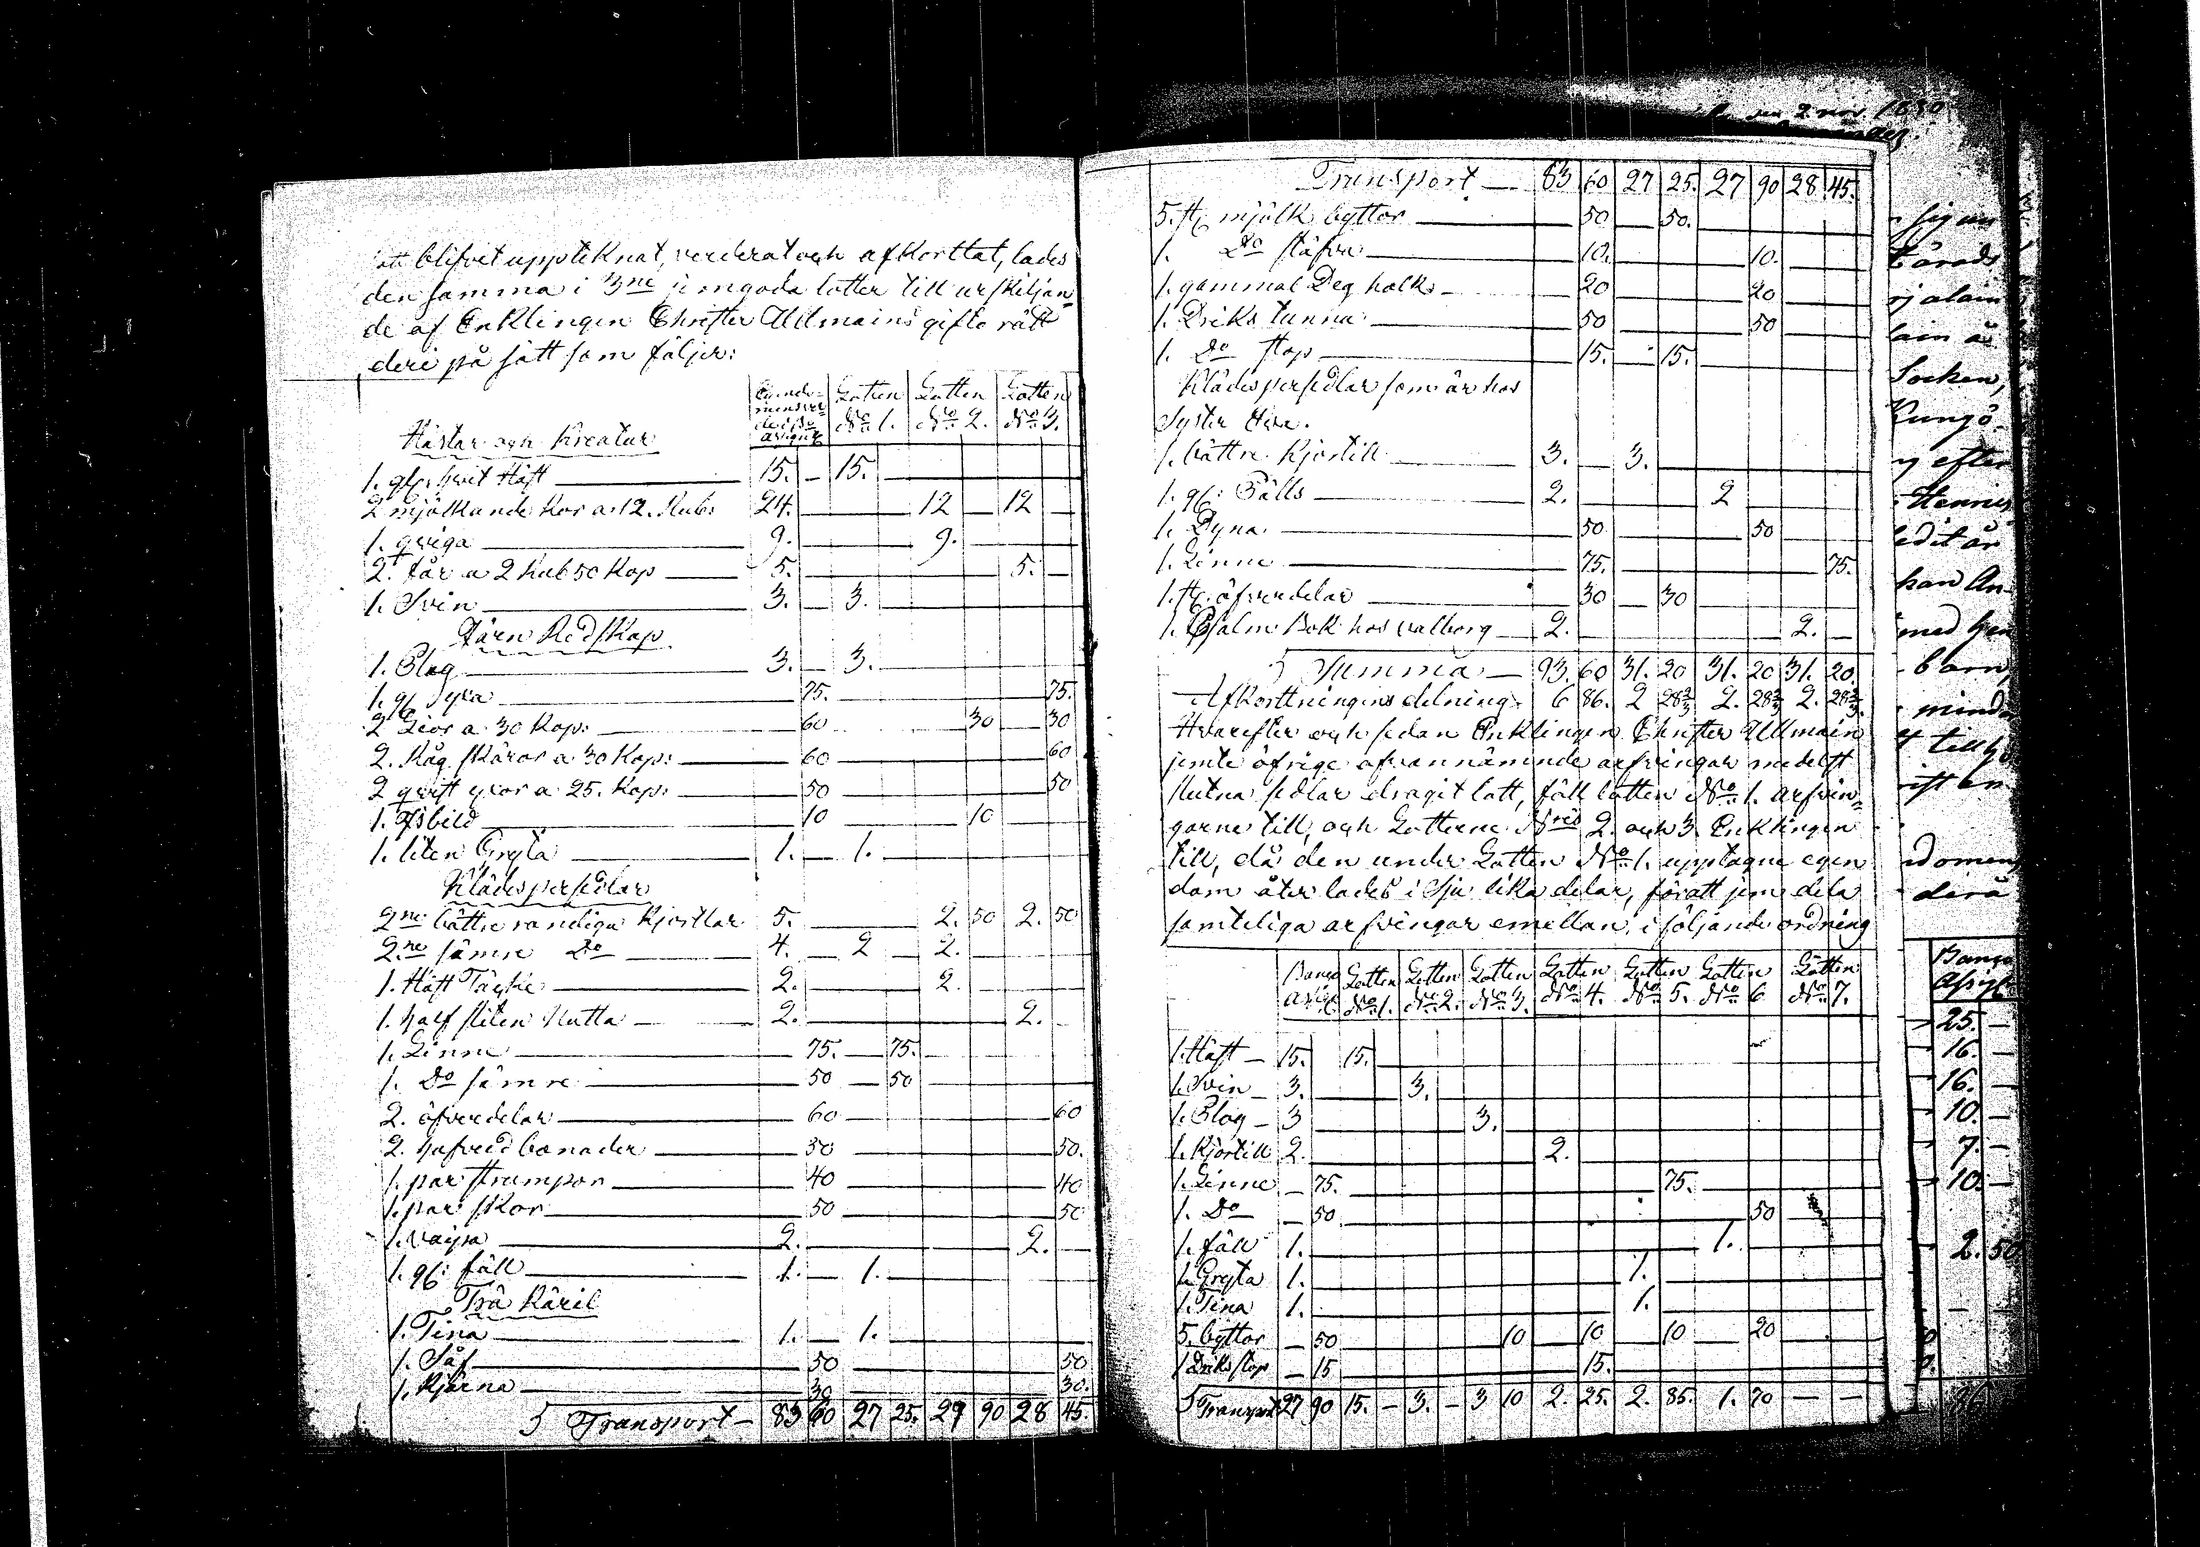 att blifvit uppteknat, verderat och afkorttat, lades
den samma i 3ne jemgoda lotter till urskiljan-
de af Enklingen Christer Ullmains gifto rätt
deri på sätt som följer:
Lotten Lotten Lotten
No 1. No 2. No 3.
Hästar och Kreatur
1. gl: hvit Häst 15. — 15.
2 mjölkande Kor a 12. Rub: 24. 12 — 12 —
1. qviga 9. 9.
2. får a 2 Rub 50 Kop 5. 5. —
1. Svin 3. — 3.
Järn Redskap
1. Plog 3. — 3.
1. gl yxa 75. 75.
2 Lior a 30 Kop: 60 30 — 30
2. Råg skäror a 30 Kop: 60 60
2 a 25. Kop: 50 50
1. Isbild 10 10
1. liten Gryta 1. — 1.
Klädespersedlar
2ne bättre randiga Kjortlar 5. 2. 50 2. 50
2ne sämre Do 4. — 2 — 2.
1. Häst Täcke 2. 2.
1. half sliten 2. 2. —
1. Linne 75. — 75.
1. Do sämre 50 — 50
2. öfverdelar 60 60
2. hufvudbonader 50 50.
1. par strumpor 40 40
1. par skor 50 50
1. 2. 2. —
1. gl: fäll 1. — 1.
Trä Käril
1. Tina 1. — 1.
1. Såf 50 50
1. Kjärna 30 30.
Transport — 83 60 27 25. 27 90 28 45.
Transport — 83 60 27 25. 27 90 28 45.
5. st. mjölk byttor 50 — 50.
1. Do stäfva 10. 10.
1. gammal Deg holk 20 20
1. Driks tunna 50 50
1. Do stop 15. 15.
Klädespersedlar som är hos
Syster
1. bättre Kjortill 3. — 3.
1. gl: Fälls 2. 2
1. Dyna 50 50
1. Linne 75. 75.
1. st. öfverdelar 30 — 30
1. Psalm Bok hos Valborg 2. 2. —
Summa — 93. 60 31. 20 31. 20 31. 20.
Afkorttningens delning. 6 86. 2 28 2/3 2. 28 2/3 2. 28 2/3.
Hvarefter och sedan Enklingen Christer Ullmain
jemte öfrige ofvannämnde arfvingar medelst
slutna sedlar dragit lott, föll lotten No 1. arfvin-
garne till, och Lotterne Nris 2. och 3. Enklingen
till, då den under Lotten No 1. upptagne egen
dom åter lades i Sju lika delar, för att jem dela
samteliga arfvingar emellan, i följande ordning
Banco Lotten Lotten Lotten Lotten Lotten Lotten Lotten
No 1. No 2. No 3. No 4. No 5. No 6 No 7.
1. Häst — 15. 15.
1. Svin — 3. 3.
1. Plog — 3 3.
1. Kjortill 2. 2.
1. Linne — 75. 75.
1. Do — 50 50
1. fäll 1. 1.
1. Gryta 1. 1.
1. Tina 1. 1.
5. byttor — 50 10 — 10 — 10 — 20
1 Driksstop — 15 15.
Transport 27 90 15. — 3. — 3 10 2. 25. 2. 85. 1. 70 — —
den 2 nov 1830
sig
Socken,
Kungö-
efter
Hennes
med
barn,
deraf
Banco
25. —
16. —
16. —
10. —
7. —
10. —
2. 50